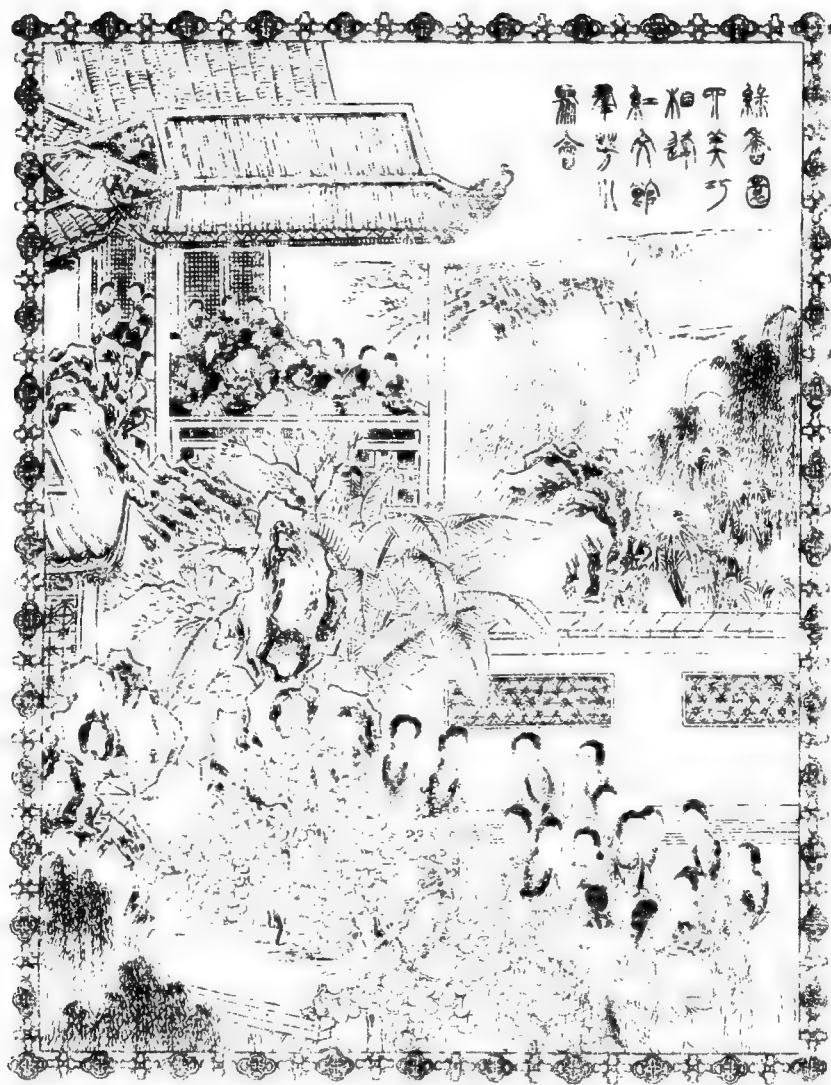 綠香園
美巧
相逢
紅文館
羣芳小
會